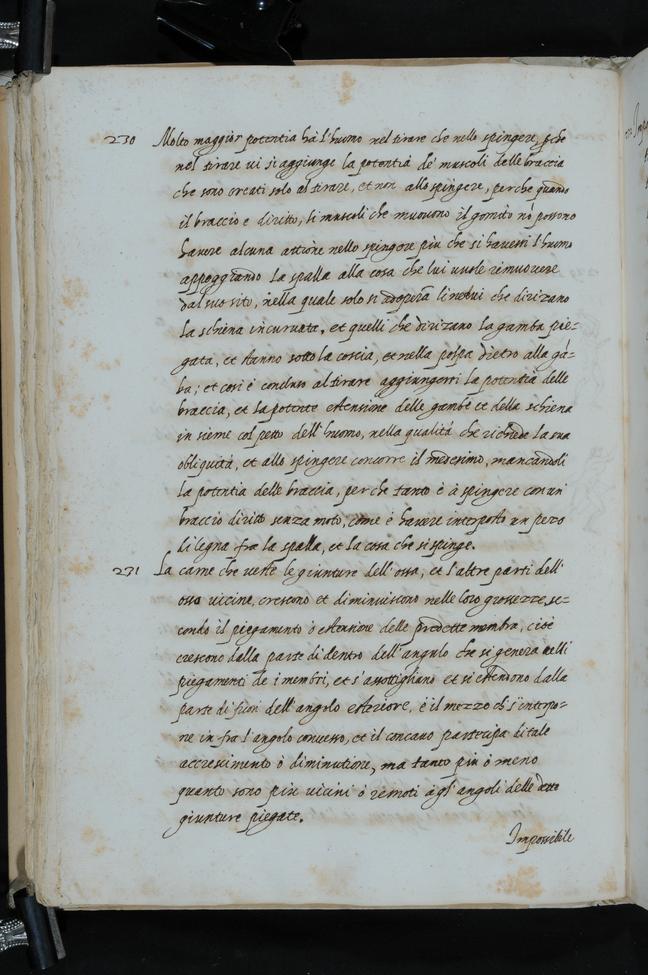 230 Molto maggior potentia hà l'huomo nel tirare che nello spingere, p che
nel tirare vi si aggiunge la potentia de' muscoli delle braccia
che sono creati solo al tirare, et non allo spingere, perche quando
il braccio e diritto, li muscoli che muovono il gomito nō possono
havere alcuna attione nello spingere più che si havessi l'huomo
appoggiando la spalla alla cosa che lui vuole rimuovere
dal suo sito, nella quale solo si adopera li nervi che dirizano
la schiena incurvata, et quelli che dirizano la gamba pie=
gata, et stanno sotto la coscia, et nella polpa dietro alla gā=
ba; et cosi è concluso al tirare aggiungervi la potentia delle
braccia, et la potente estensione delle gambe et della schiena
in sieme col petto dell'huomo, nella qualità che richiede la sua
obliquità, et allo spingere concorre il medesimo, mancandoli
la potentia delle braccia, perche tanto è à spingere con un'
braccio diritto senza moto, come è havere interposto un pezo
di legna fra la spalla, et la cosa che si spinge.
231 La carne che veste le giunture dell'ossa, et l'altre parti dell'
ossa vicine, crescono et diminuiscono nelle loro grossezze, se=
condo il piegamento ò estensione delle predette membra, cioè
crescono dalla parte di dentro dell'angulo che si genera nelli
piegamenti de i membri, et s'assottigliano et si estendono dalla
parte di fuori dell'angolo esteriore, è il mezzo ch s'interpo=
ne in fra l'angolo convesso, et il concavo partecipa di tale
accrescimento ò diminutione, ma tanto più ò meno
quanto sono più vicini ò remoti à gl'angoli delle dette
giunture piegate.
Impossibile